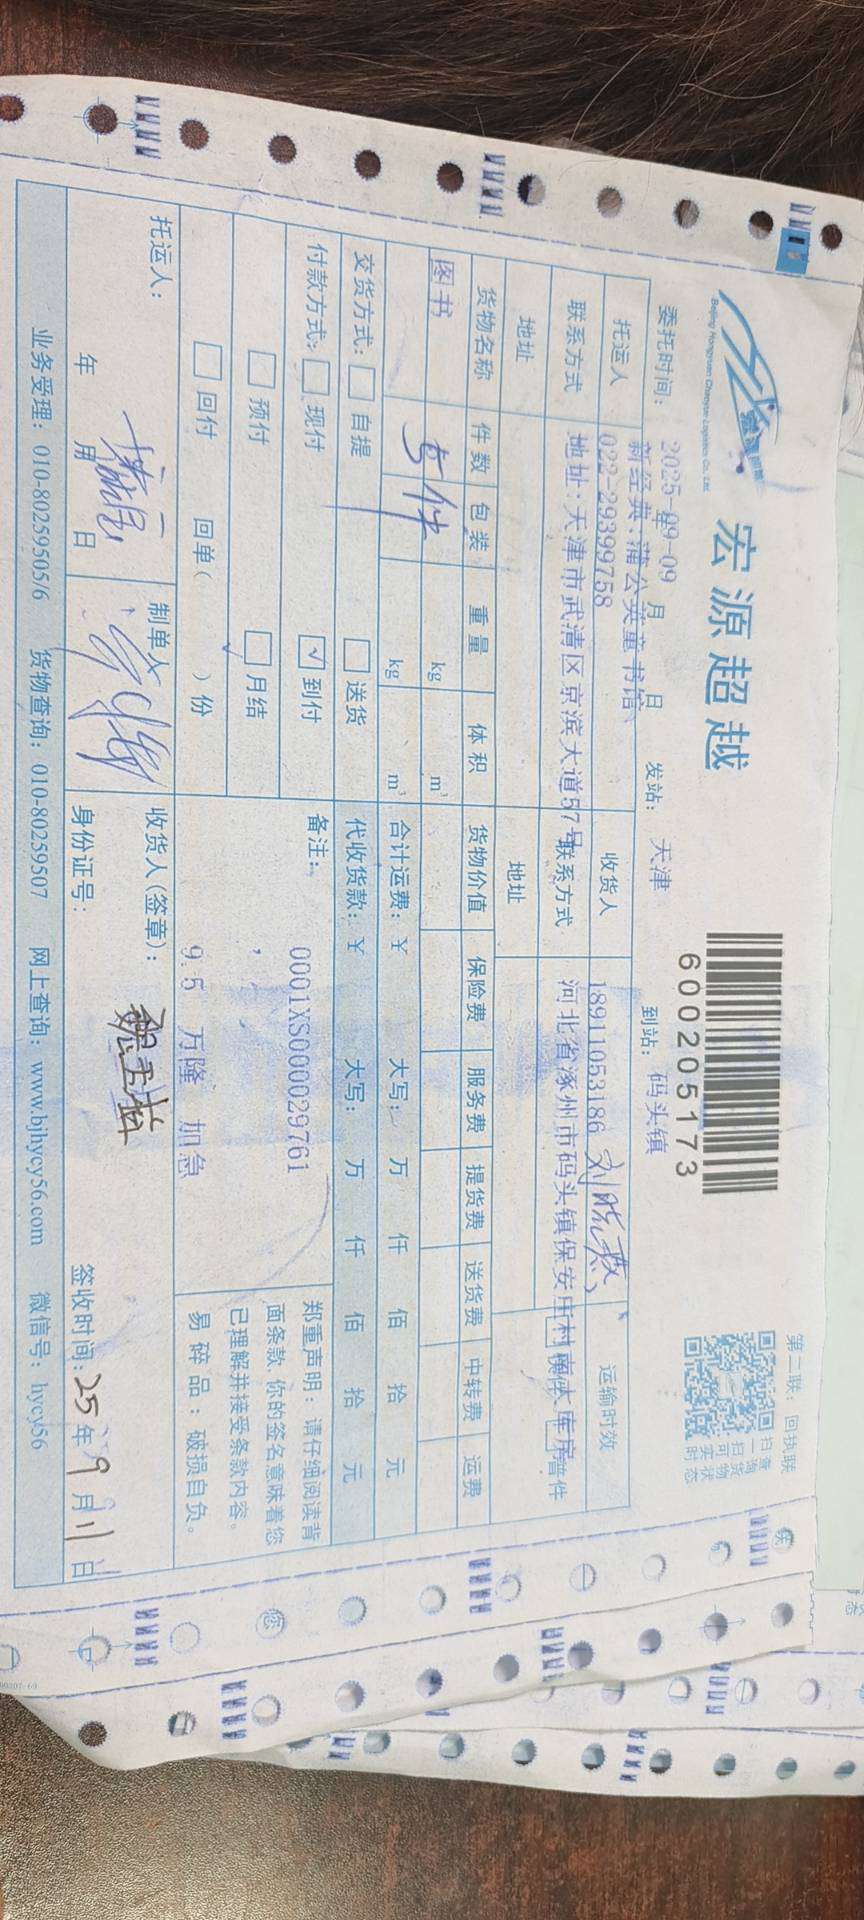 宏源超越
Beijing Hongyuan Chaoyue Logistics Co., Ltd.
600205173
第二联：回执联
扫一扫可实时
查询货物状态
委托时间： 2025-09-09 年 月 日 发站： 天津 到站： 码头镇
托运人 新经典：蒲公英童书馆 收货人 运输时效
联系方式 022-29399758 联系方式 18911053186 刘晓燕
地址 地址：天津市武清区京滨大道57号 地址 河北省涿州市码头镇保安庄村南大库房
普件
货物名称 件数 包装 重量 体积 货物价值 保险费 服务费 提货费 送货费 中转费 运费
图书 5件 kg m³
kg m³ 合计运费：¥ 大写： 万 仟 佰 拾 元
交货方式： 自提 送货 代收货款：¥ 大写： 万 仟 佰 拾 元
付款方式： 现付 √ 到付 备注： 0001XS000029761
预付 月结
回付 回单（ ）份 9.5 万隆 加急
郑重声明：请仔细阅读背
面条款,你的签名意味着您
已理解并接受条款内容。
易碎品：破损自负。
托运人： 年 月 日 制单人 收货人(签章)：
身份证号： 签收时间：25年9月11日
业务受理：010-80259505/6 货物查询：010-80259507 网上查询：www.bjhycy56.com 微信号：hycy56